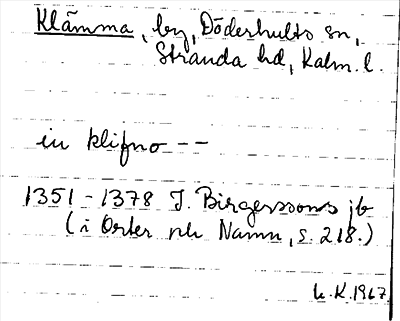 Klämma, by, Döderhults sn,
Stranda hd, Kalm. l.
in klifno --
1351-1378 J. Birgerssons jb
(i Orter och Namn, s. 218.)
K. 1967